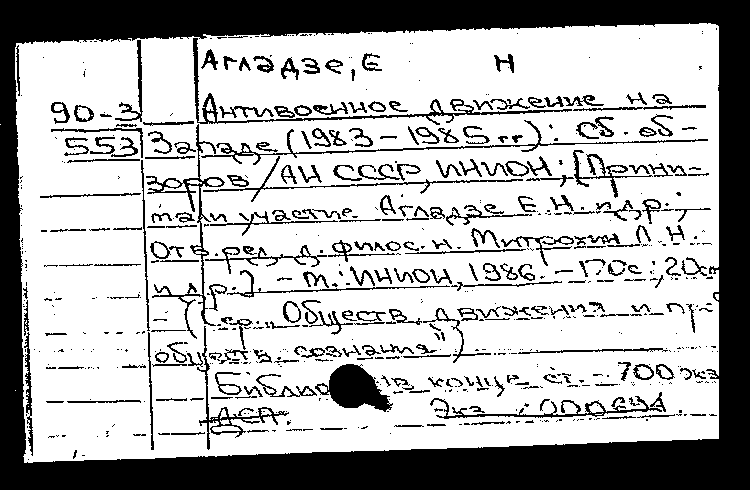 Агладзе, Е Н
90-3 Антивоенное движение на
553 Западе (1983-1985 гг): Сб. об-
зоров / АН СССР, ИНИОН; [Прини-
мали участие Агладзе Е.Н. и др.;
Отв. ред. д. филос. н. Митрохин Л.Н.
и др.]. - М.: ИНИОН, 1986. - 170с; 20см
- (Сер. „Обществ. движения и
обществ. сознания")
в конце ст. - 700 экз
ДСП. Экз : 000694.